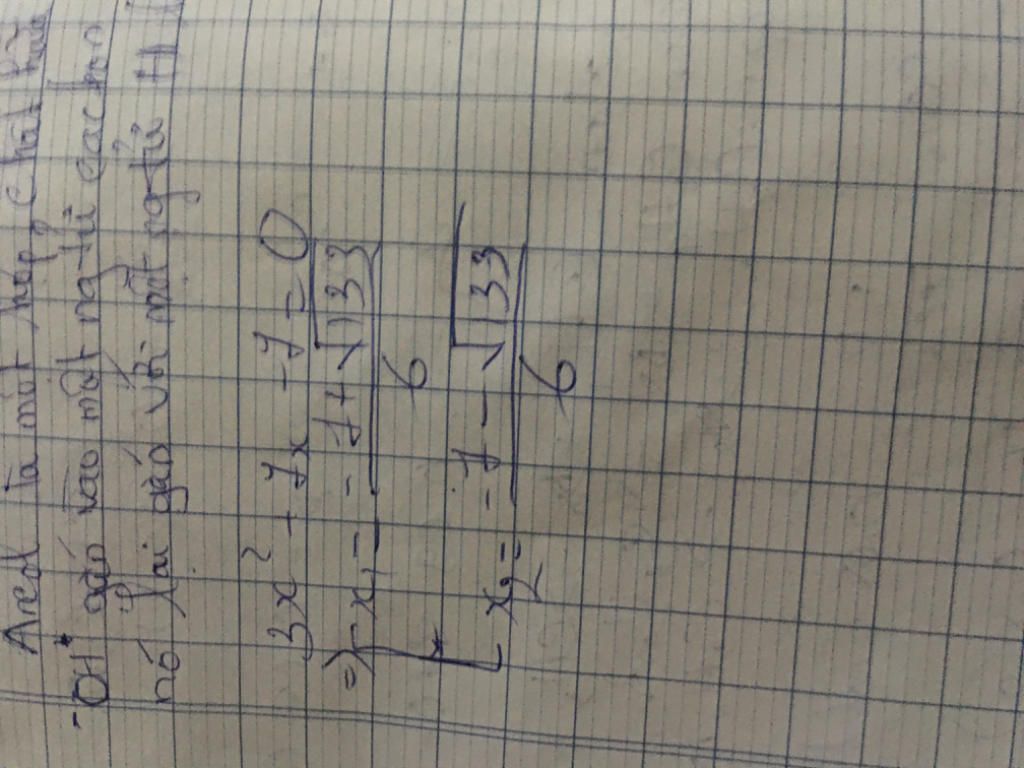 Ancol là một hợp chất hữu
-OH gắn vào một ng.tử cacbon
nó lại gắn với một ng.tử H
3x² + 7x - 7 = 0
=> [ x₁ = (-7 + √133) / 6
x₂ = (-7 - √133) / 6